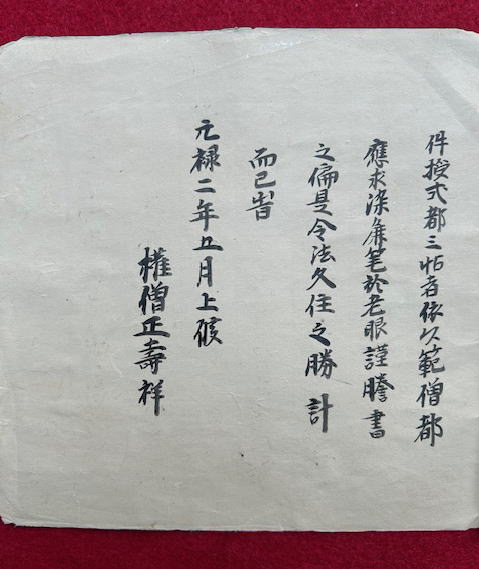 件授式都三帖者依以範僧都
應求染麁笔於老眼謹謄書
之偏是令法久住之勝計
而已
元禄二年五月上
權僧正壽祥